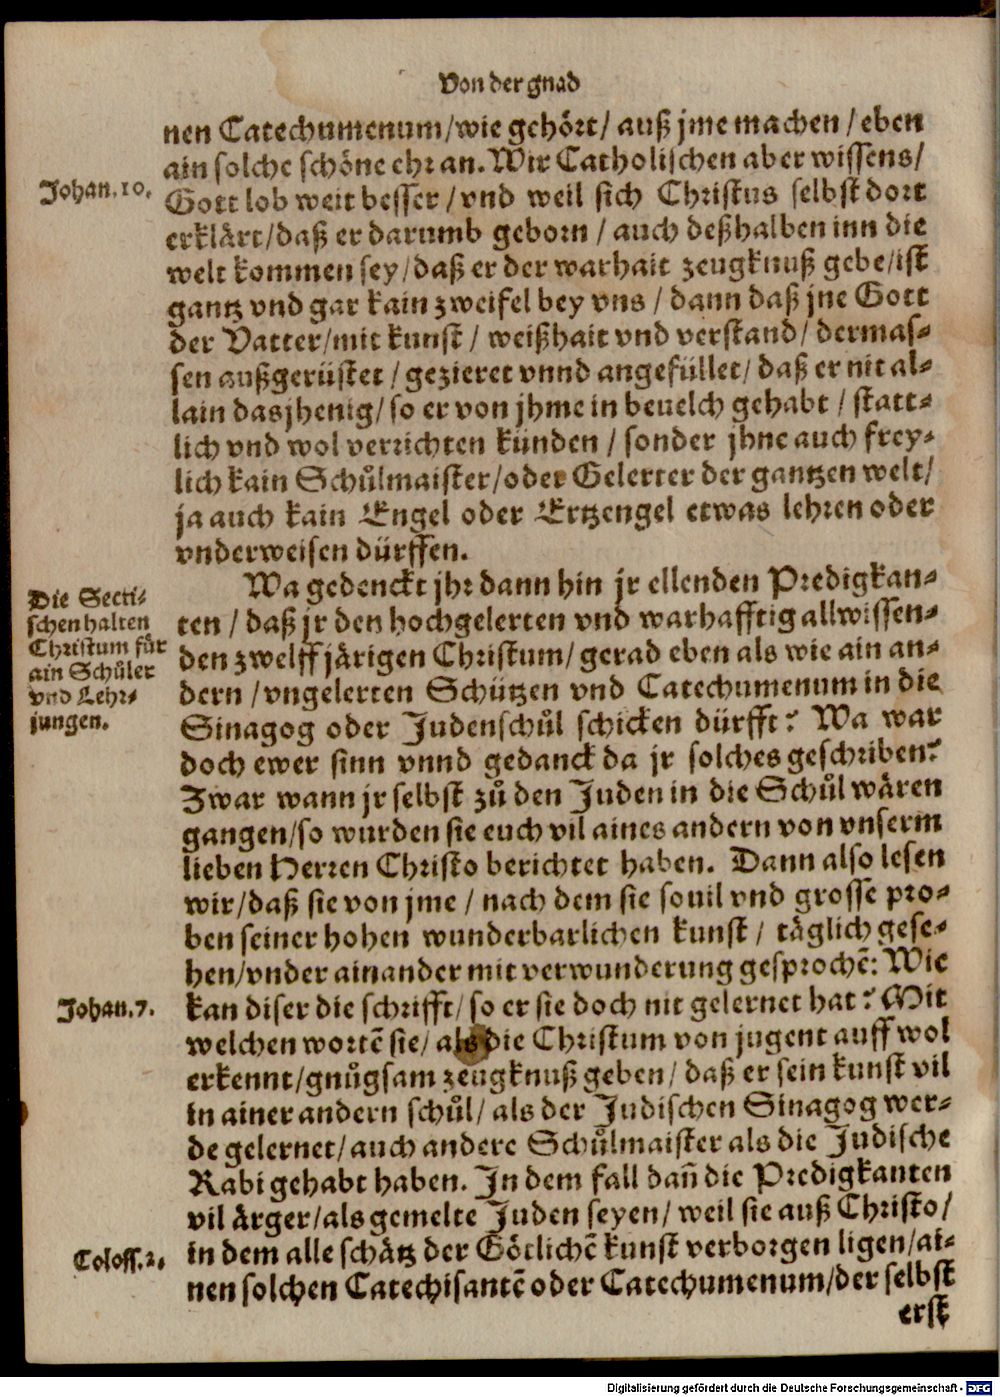 Von der gnad
nen Catechumenum/wie gehört/ auß jme machen / eben
ain solche schöne ehr an. Wir Catholischen aber wissens/
Johan.10.
Gott lob weit besser / vnd weil sich Christus selbst dort
erklärt/daß er darumb geborn / auch deßhalben inn die
welt kommen sey/daß er der warhait zeugknuß gebe/ist
gantz vnd gar kain zweifel bey vns / dann daß jne Gott
der Vatter/mit kunst / weißhait vnd verstand/ dermas-
sen außgerüstet / gezieret vnnd angefüllet/ daß er nit al-
lain dasjhenig/ so er von jhme in beuelch gehabt / statt-
lich vnd wol verrichten künden / sonder jhne auch frey-
lich kain Schůlmaister/oder Gelerter der gantzen welt/
ja auch kain Engel oder Ertzengel etwas lehren oder
vnderweisen dürffen.
Die Secti-
schen halten
Christum für
ain Schůler
vnd Lehr-
jungen.
Wa gedenckt jhr dann hin jr ellenden Predigkan-
ten / daß jr den hochgelerten vnd warhafftig allwissen-
den zwelff järigen Christum/ gerad eben als wie ain an-
dern / vngelerten Schützen vnd Catechumenum in die
Sinagog oder Judenschůl schicken dürfft? Wa war
doch ewer sinn vnnd gedanck da jr solches geschriben?
Zwar wann jr selbst zů den Juden in die Schůl wären
gangen/so wurden sie euch vil aines andern von vnserm
lieben Herren Christo berichtet haben. Dann also lesen
wir/daß sie von jme / nach dem sie souil vnd grosse pro-
ben seiner hohen wunderbarlichen kunst / täglich gese-
hen/vnder ainander mit verwunderung gesprochē: Wie
Johan.7.
kan diser die schrifft/ so er sie doch nit gelernet hat? Mit
welchen wortē sie/ als die Christum von jugent auff wol
erkennt/gnůgsam zeugknuß geben/ daß er sein kunst vil
in ainer andern schůl/ als der Judischen Sinagog wer-
de gelernet/auch andere Schůlmaister als die Judische
Rabi gehabt haben. In dem fall dañ die Predigkanten
vil ärger/als gemelte Juden seyen/ weil sie auß Christo/
Coloss.2.
in dem alle schätz der Götlichē kunst verborgen ligen/ai-
nen solchen Catechisantē oder Catechumenum/der selbst
erst
Digitalisierung gefördert durch die Deutsche Forschungsgemeinschaft - DFG